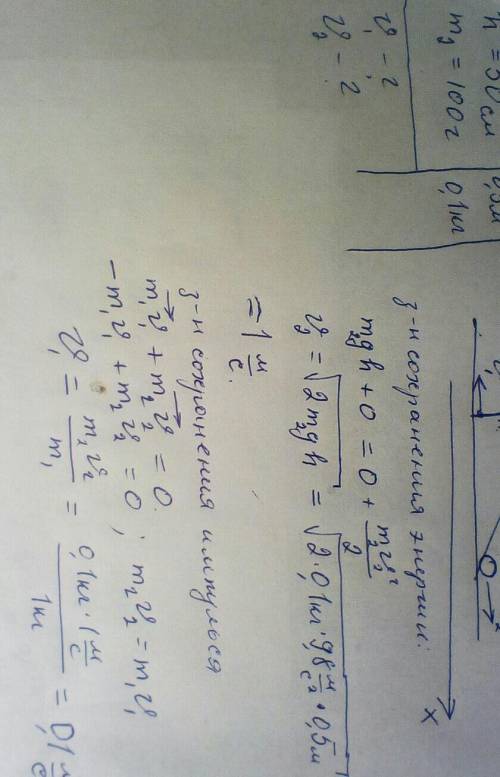 h = 50 см | 0,5м
m₂ = 100г | 0,1кг
v₁ - ?
v₂ - ?
x
з-н сохранения энергии:
m₂gh + 0 = 0 + m₂v₂²/2
v₂ = √2m₂gh = √2·0,1кг·9,8 м/с²·0,5м
= 1 м/с.
з-н сохранения импульса
m₁v₁ + m₂v₂ = 0
-m₁v₁ + m₂v₂ = 0; m₂v₂ = m₁v₁
v₁ = m₂v₂/m₁ = 0,1кг·1 м/с / 1кг = 0,1 м/с